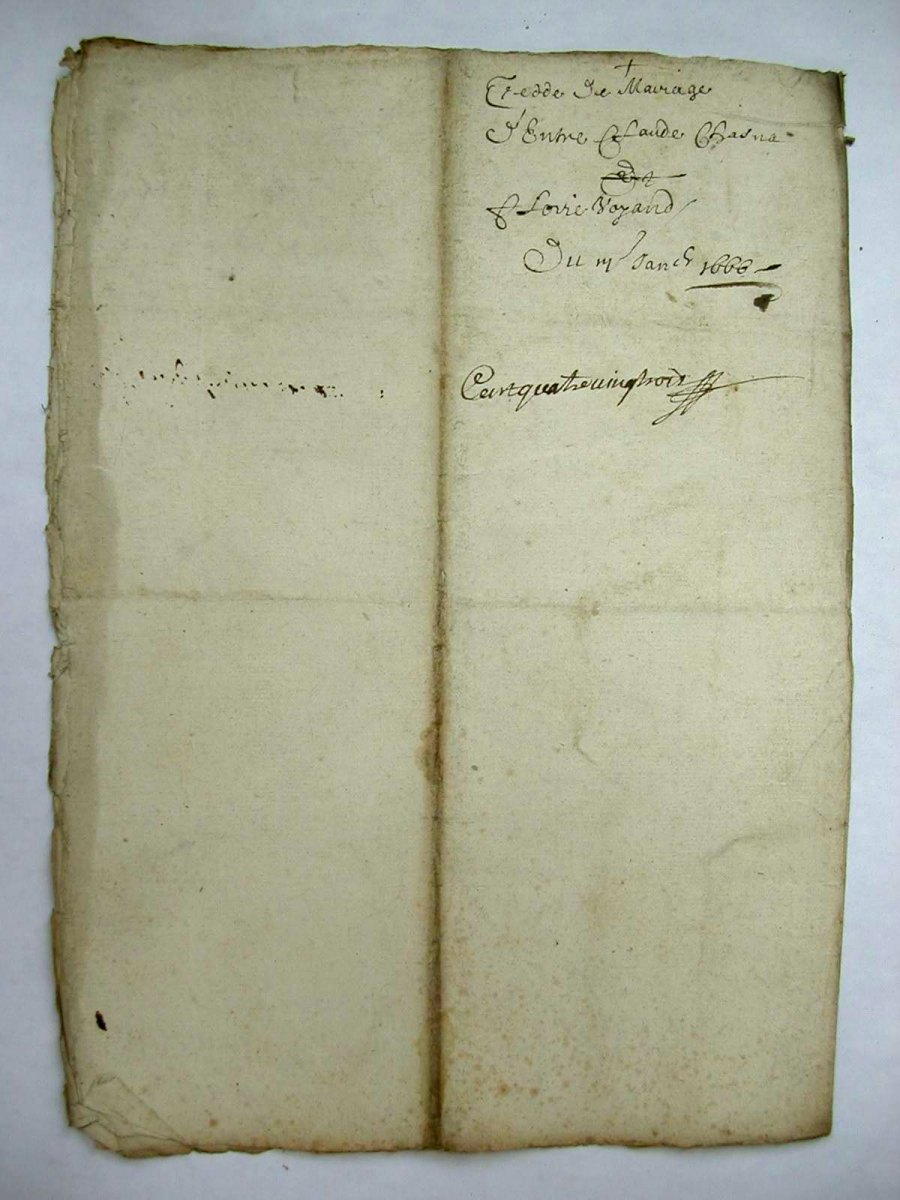 Tredde De Mariage
D'Entre Claude Chasna
Et
Florie Voyand
Du Janer 1666
Cent quatre uing trois